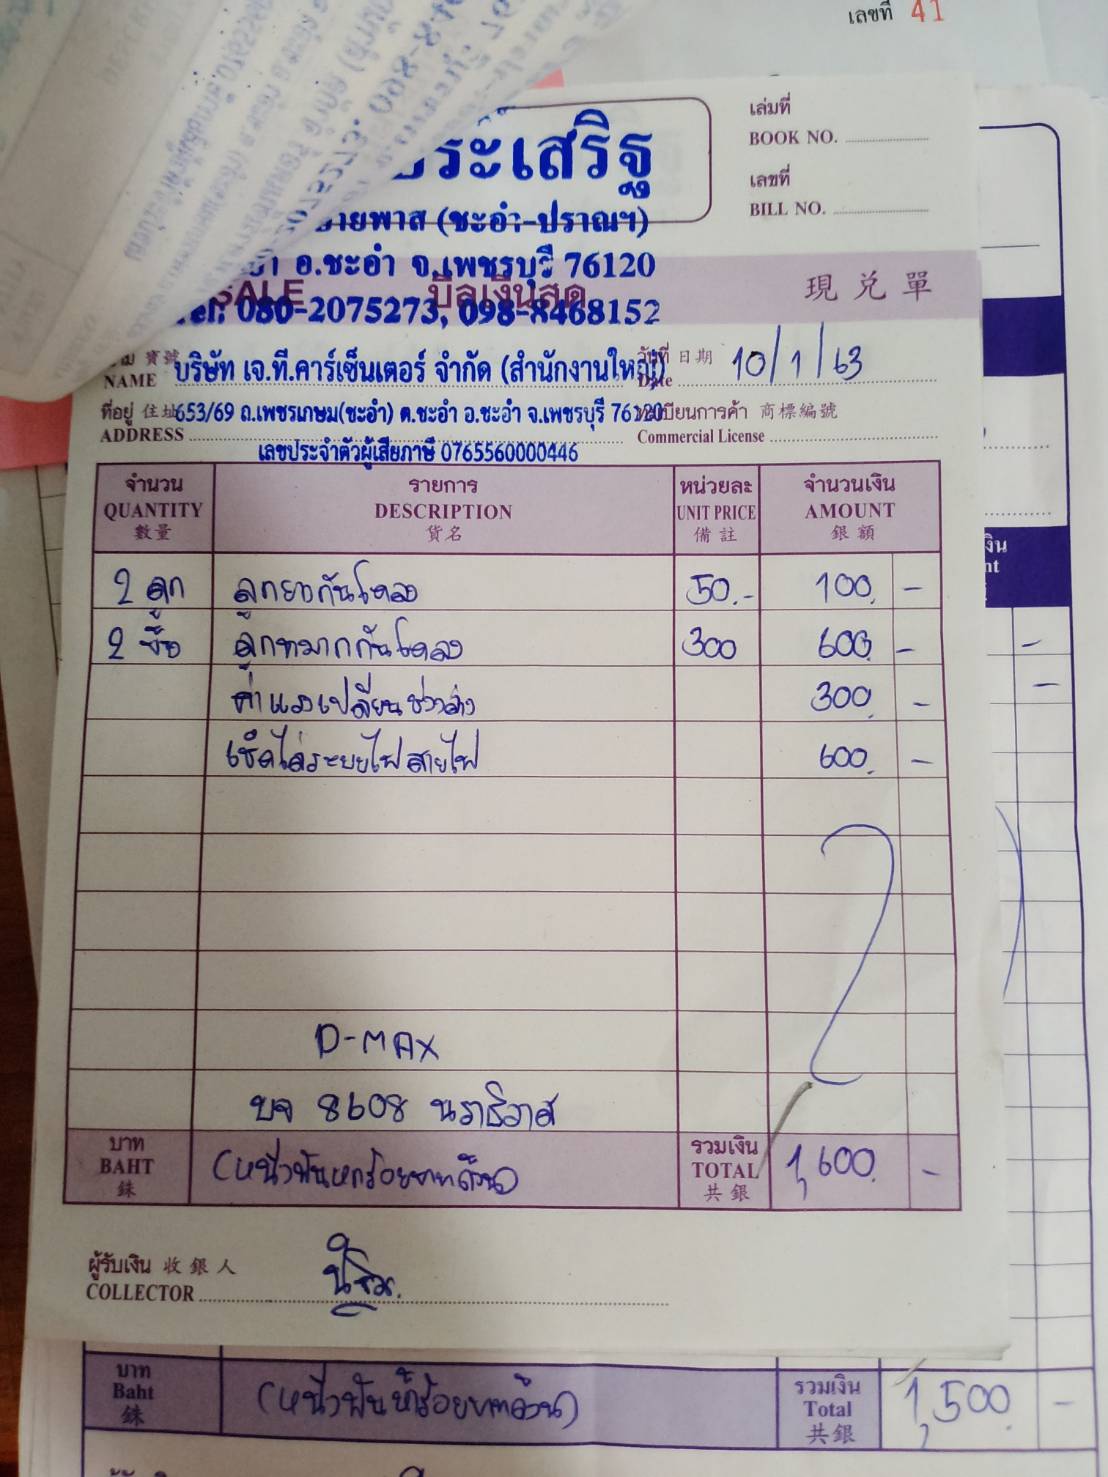 เลขที่ 41
ระเสริฐ
เล่มที่
BOOK NO.
เลขที่
BILL NO.
ายพาส (ชะอำ-ปราณฯ)
อ.ชะอำ จ.เพชรบุรี 76120
SALE บิลเงินสด 現兑單
Tel. 080-2075273, 098-8468152
寶號 วันที่ 日期
NAME บริษัท เจ.ที.คาร์เซ็นเตอร์ จำกัด (สำนักงานใหญ่) Date 10/1/63
ที่อยู่ 住址 653/69 ถ.เพชรเกษม(ชะอำ) ต.ชะอำ อ.ชะอำ จ.เพชรบุรี 76120 ทะเบียนการค้า 商標編號
ADDRESS Commercial License
เลขประจำตัวผู้เสียภาษี 0765560000446
จำนวน รายการ หน่วยละ จำนวนเงิน
QUANTITY DESCRIPTION UNIT PRICE AMOUNT
數量 貨名 備註 銀額
2 ลูก ลูกยางกันโคลง 50.- 100 -
2 ชิ้น ลูกหมากกันโคลง 300 600 -
ค่าแรงเปลี่ยนช่วงล่าง 300 -
เช็คไล่ระบบไฟสายไฟ 600 -
D-MAX
บจ 8608 นราธิวาส
บาท รวมเงิน
BAHT (หนึ่งพันหกร้อยบาทถ้วน) TOTAL 1,600 -
銖 共銀
ผู้รับเงิน 收銀人
COLLECTOR
บาท รวมเงิน
Baht (หนึ่งพันห้าร้อยบาทถ้วน) Total 1,500 -
銖 共銀